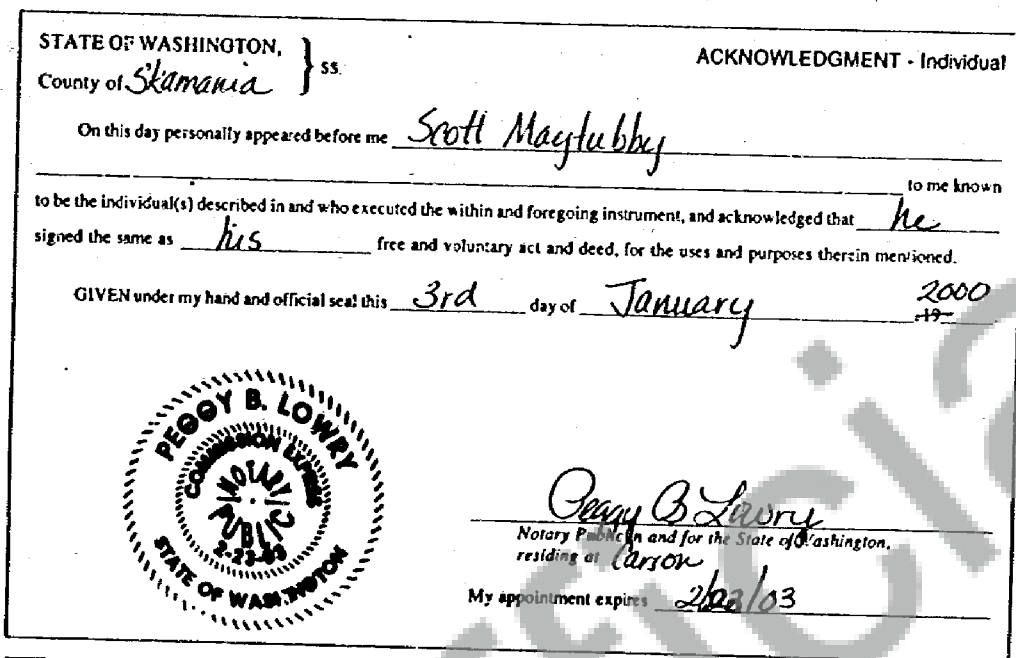 STATE OF WASHINGTON, } ss.
ACKNOWLEDGMENT - Individual
County of Skamania
On this day personally appeared before me Scott Maytubby
to me known
to be the individual(s) described in and who executed the within and foregoing instrument, and acknowledged that he
signed the same as his free and voluntary act and deed, for the uses and purposes therein mentioned.
GIVEN under my hand and official seal this 3rd day of January 2000
, 19
PEGGY B. LOWRY
COMMISSION EXPIRES
NOTARY
PUBLIC
2-23-03
STATE OF WASHINGTON
Peggy B Lowry
Notary Public in and for the State of Washington,
residing at Carson
My appointment expires 2/23/03